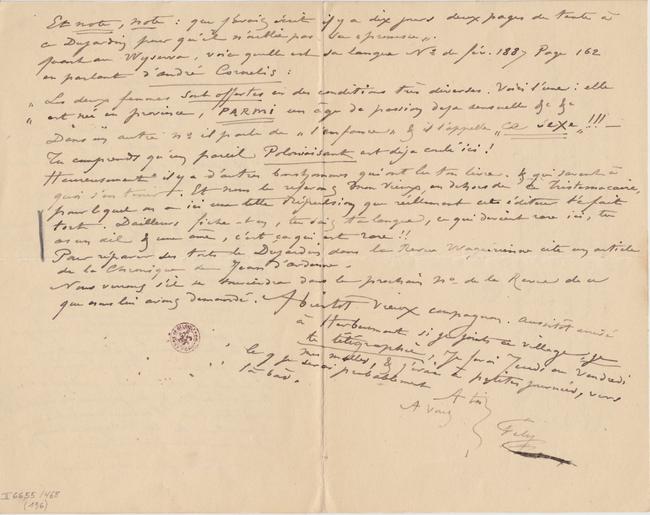 Et note, note : que j'avais écrit il y a dix jours deux pages de texte à
ce Dujardin pour qu'il n'oublie pas "sa promesse".
quant au Wysewa, voici quelle est sa langue No de fév. 1887 Page 162
en parlant d'André Cornelis :
"Les deux femmes sont offertes en des conditions très diverses. Voici l'une : elle
"est née en province, PARMI un âge de passion déjà sensuelle &c &c
Dans un autre no il parle de "l'enfance" & il l'appelle "ce sexe" !!! —
Tu comprends qu'un pareil Polonaisant est déjà coulé ici !
Heureusement il y a d'autres bonshommes qui ont lu ton livre. & qui savent à
quoi s'en tenir. Et nous le referons mon vieux, en dehors de
pour lequel on a ici une telle répulsion que réellement cet éditeur te fait
tort. D'ailleurs fiche-t'en, tu sais ta langue, ce qui devient rare ici, tu
as un œil & une âme, c'est ça qui est rare !!
Pour réparer ses torts le Dujardin dans la Revue Wagnérienne cite un article
de la Chronique de Jean d'Ardenne.
Nous verrons s'il se souviendra dans le prochain no de la Revue de ce
que nous lui avons demandé. A bientôt vieux compagnon. Aussitôt arrivé
à Herbeumont si je goûte ce village. Je
te télégraphie. Je serai Jeudi ou Vendredi
& j'irai à petites journées, vers
le 9 je serai probablement
là-bas.
A toi
A vous
Fély
II 6655/468
(196)